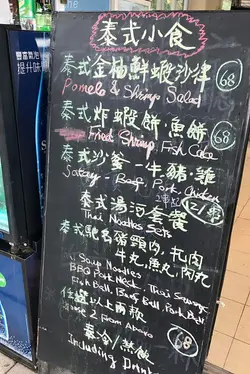 泰式小食
泰式金柚鮮蝦沙律 68
Pomelo & Shrimp Salad
泰式炸蝦餅・魚餅 68
Fried Shrimp, Fish Cake
泰式沙爹-牛・豬・雞
Satay - Beef, Pork, Chicken
泰式湯河套餐
Thai Noodles Set
泰式馳名豬頸肉、扎肉
牛丸、魚丸、肉丸
Soup Noodles
BBQ Pork Neck, Thai Sausage
Fish Ball, Beef Ball, Pork Ball
任選以上兩款
Choose 2 from Above 68
泰冷/熱飲
Including Drink